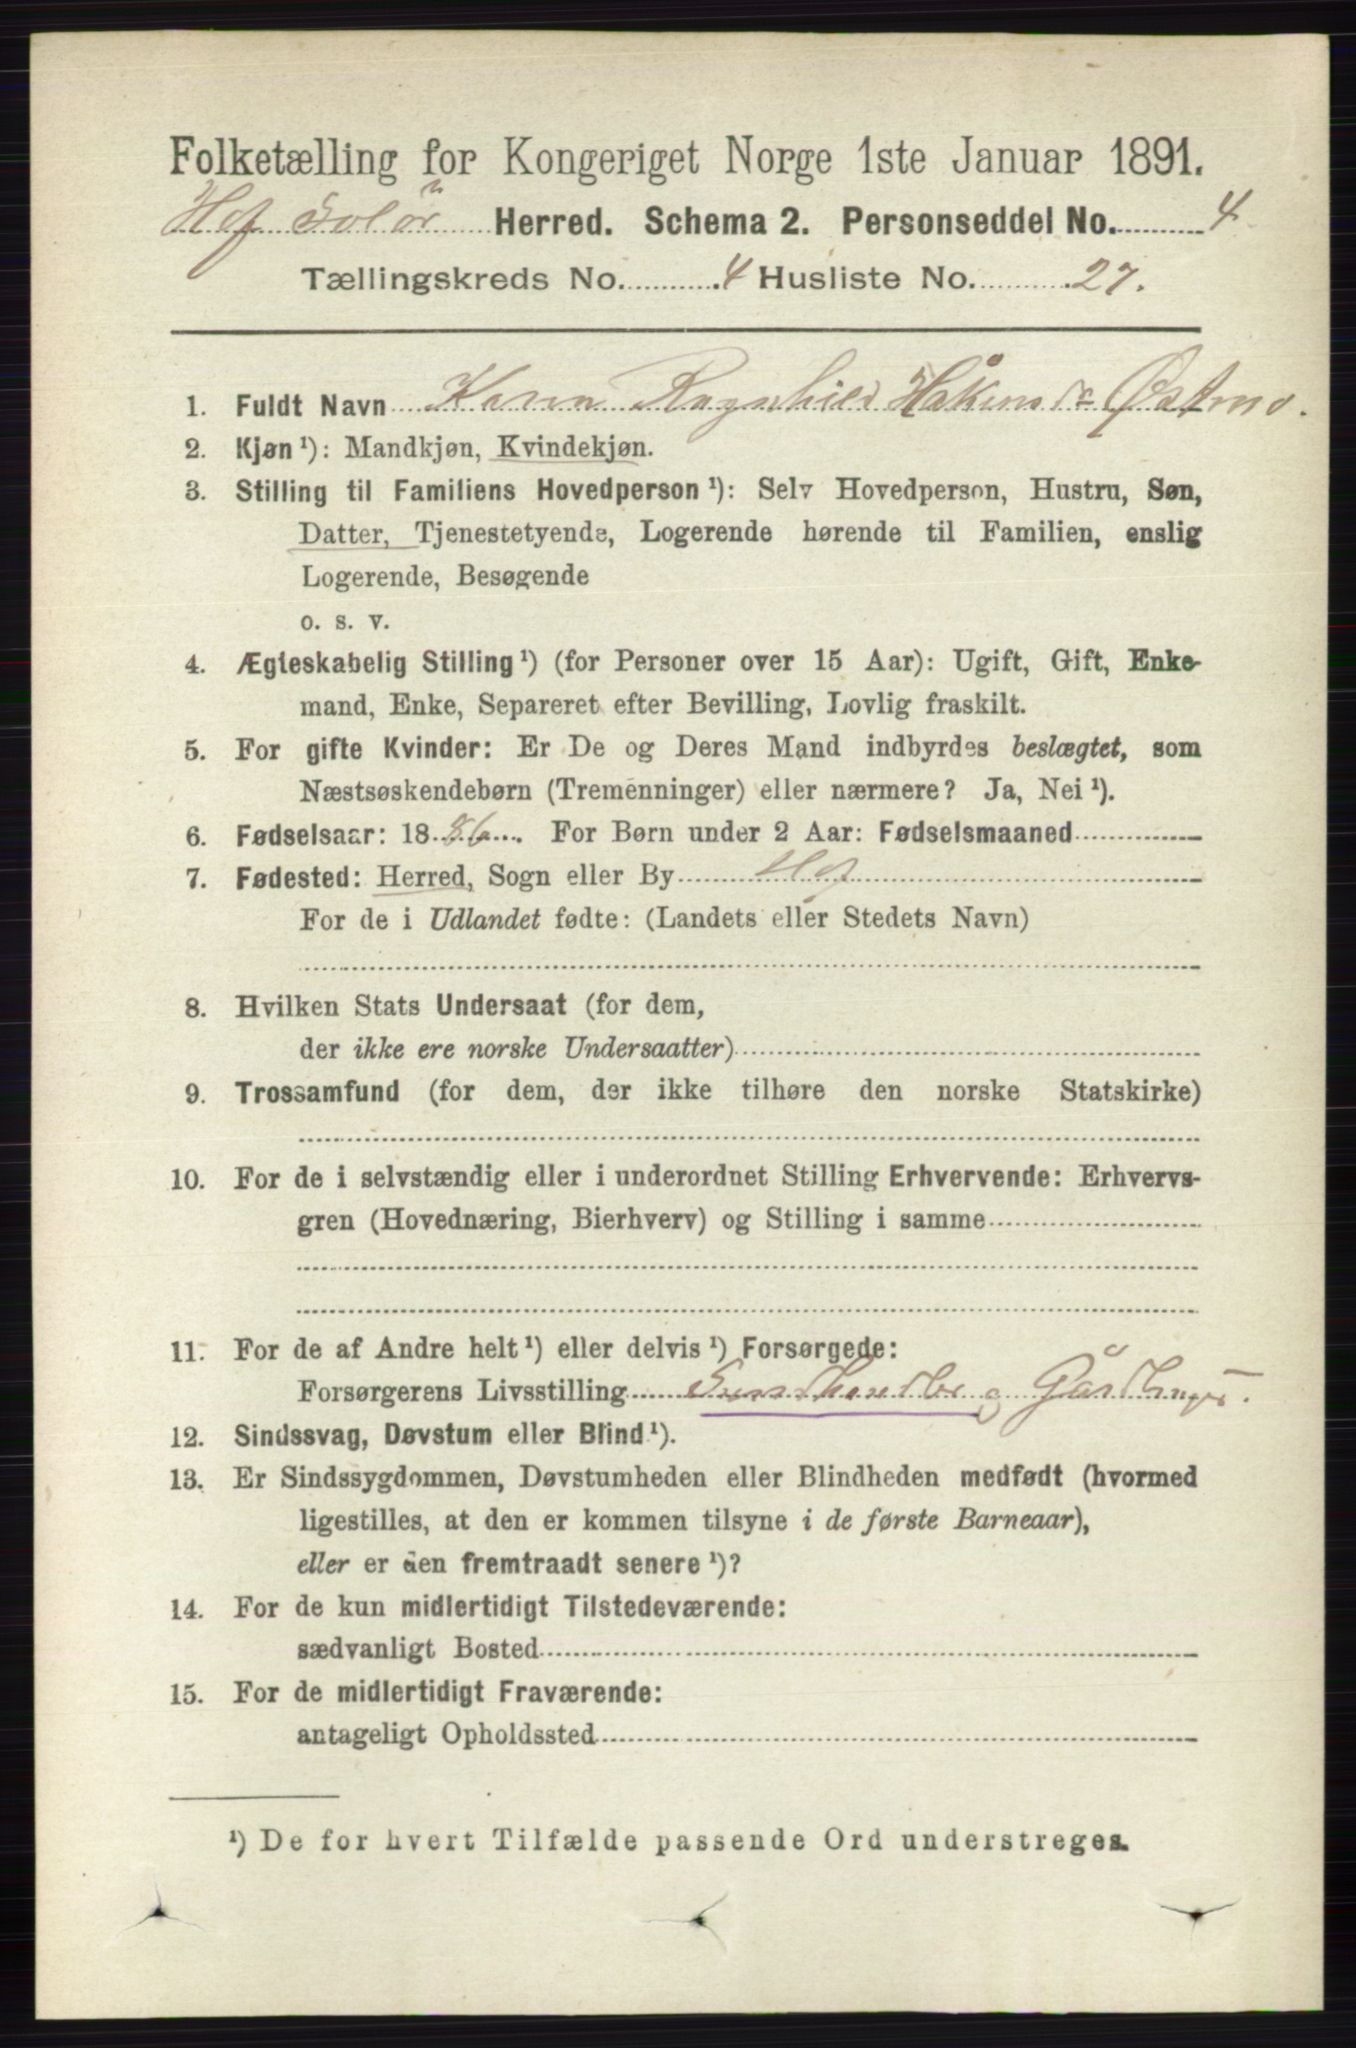 Folketælling for Kongeriget Norge 1ste Januar 1891.
Hof Solör Herred. Schema 2. Personseddel No. 4
Tællingskreds No. 4 Husliste No. 27.
1. Fuldt Navn Karen Ragnhild Håkensdr Østmo.
2. Kjøn ¹): Mandkjøn, Kvindekjøn.
3. Stilling til Familiens Hovedperson ¹): Selv Hovedperson, Hustru, Søn,
Datter, Tjenestetyende, Logerende hørende til Familien, enslig
Logerende, Besøgende
o. s. v.
4. Ægteskabelig Stilling ¹) (for Personer over 15 Aar): Ugift, Gift, Enke-
mand, Enke, Separeret efter Bevilling, Lovlig fraskilt.
5. For gifte Kvinder: Er De og Deres Mand indbyrdes beslægtet, som
Næstsøskendebørn (Tremenninger) eller nærmere? Ja, Nei ¹).
6. Fødselsaar: 1886. For Børn under 2 Aar: Fødselsmaaned
7. Fødested: Herred, Sogn eller By Hof
For de i Udlandet fødte: (Landets eller Stedets Navn)
8. Hvilken Stats Undersaat (for dem,
der ikke ere norske Undersaatter)
9. Trossamfund (for dem, der ikke tilhøre den norske Statskirke)
10. For de i selvstændig eller i underordnet Stilling Erhvervende: Erhvervs-
gren (Hovednæring, Bierhverv) og Stilling i samme
11. For de af Andre helt ¹) eller delvis ¹) Forsørgede:
Forsørgerens Livsstilling og
12. Sindssvag, Døvstum eller Blind ¹).
13. Er Sindssygdommen, Døvstumheden eller Blindheden medfødt (hvormed
ligestilles, at den er kommen tilsyne i de første Barneaar),
eller er den fremtraadt senere ¹)?
14. For de kun midlertidigt Tilstedeværende:
sædvanligt Bosted
15. For de midlertidigt Fraværende:
antageligt Opholdssted
¹) De for hvert Tilfælde passende Ord understreges.